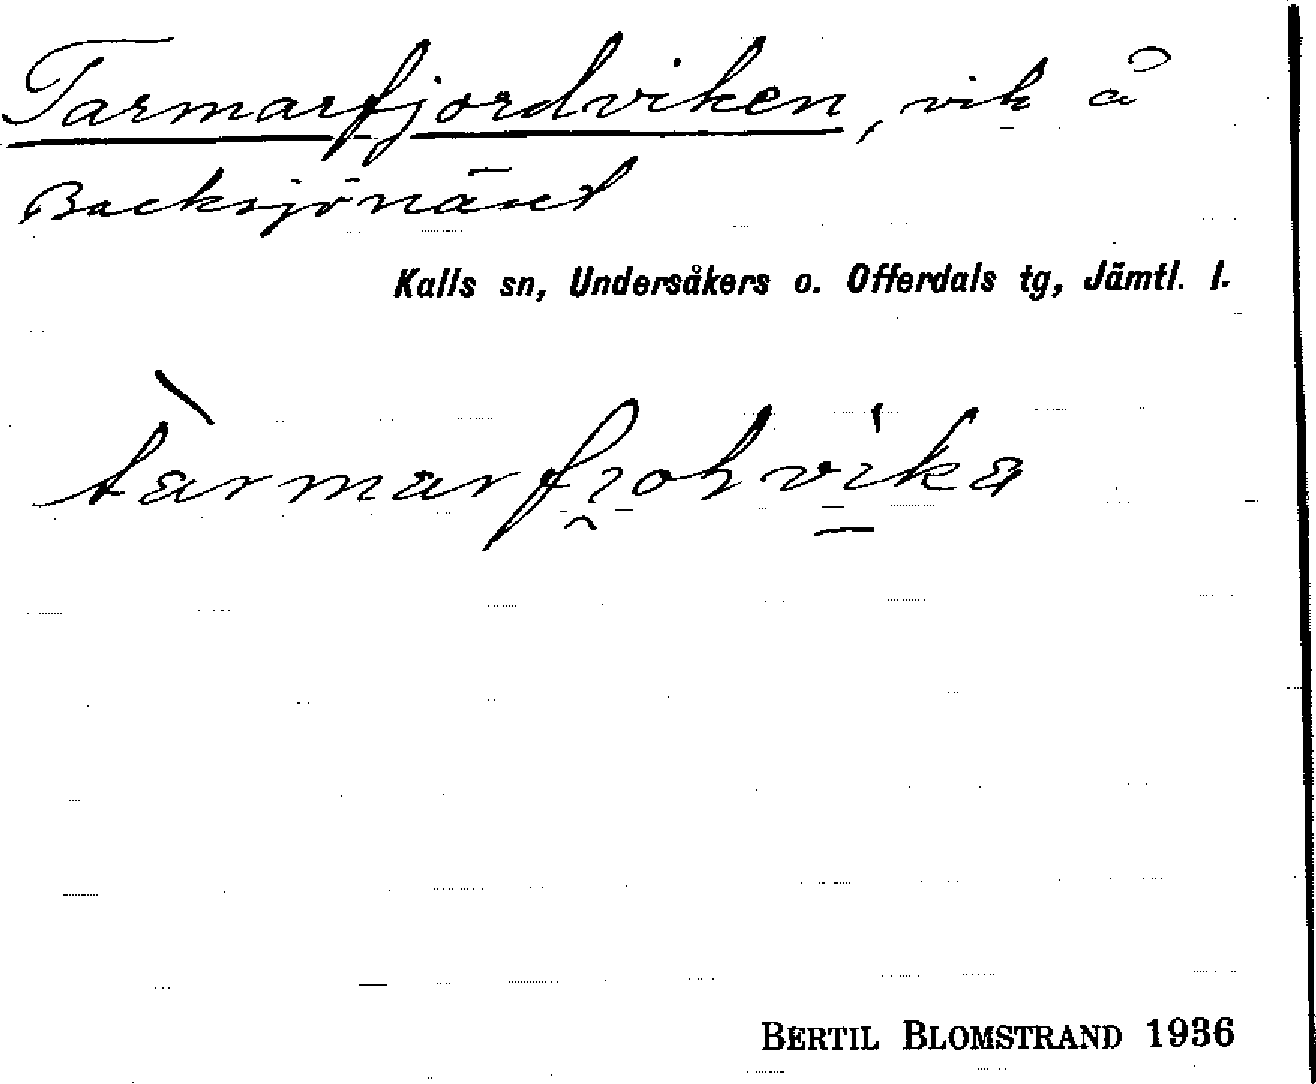 Tarmarfjordviken, vik å
Backsjönäset
Kalls sn, Undersåkers o. Offerdals tg, Jämtl. l.
BERTIL BLOMSTRAND 1936